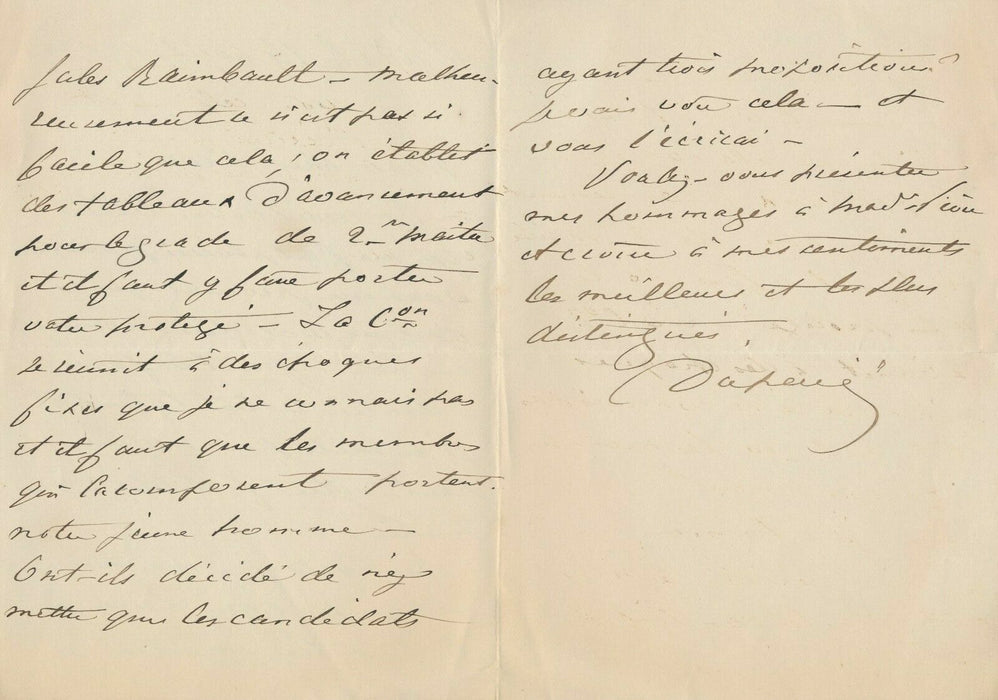 Jules Raimbault – malheu-
reusement ce n'est pas si
facile que cela ; on établit
des tableaux d'avancement
pour le grade de 2me maitre
et il faut y faire porter
votre protégé – La Con
se réunit à des époques
fixes que je ne connais pas
et il faut que les membres
qui la composent portent
notre jeune homme –
Ont-ils décidé de n'y
mettre que les candidats
ayant trois propositions?
je vais voir cela – et
vous l'écrirai –
Voulez-vous présenter
mes hommages à
et croire à mes sentiments
les meilleurs et les plus
distingués.
Duperré